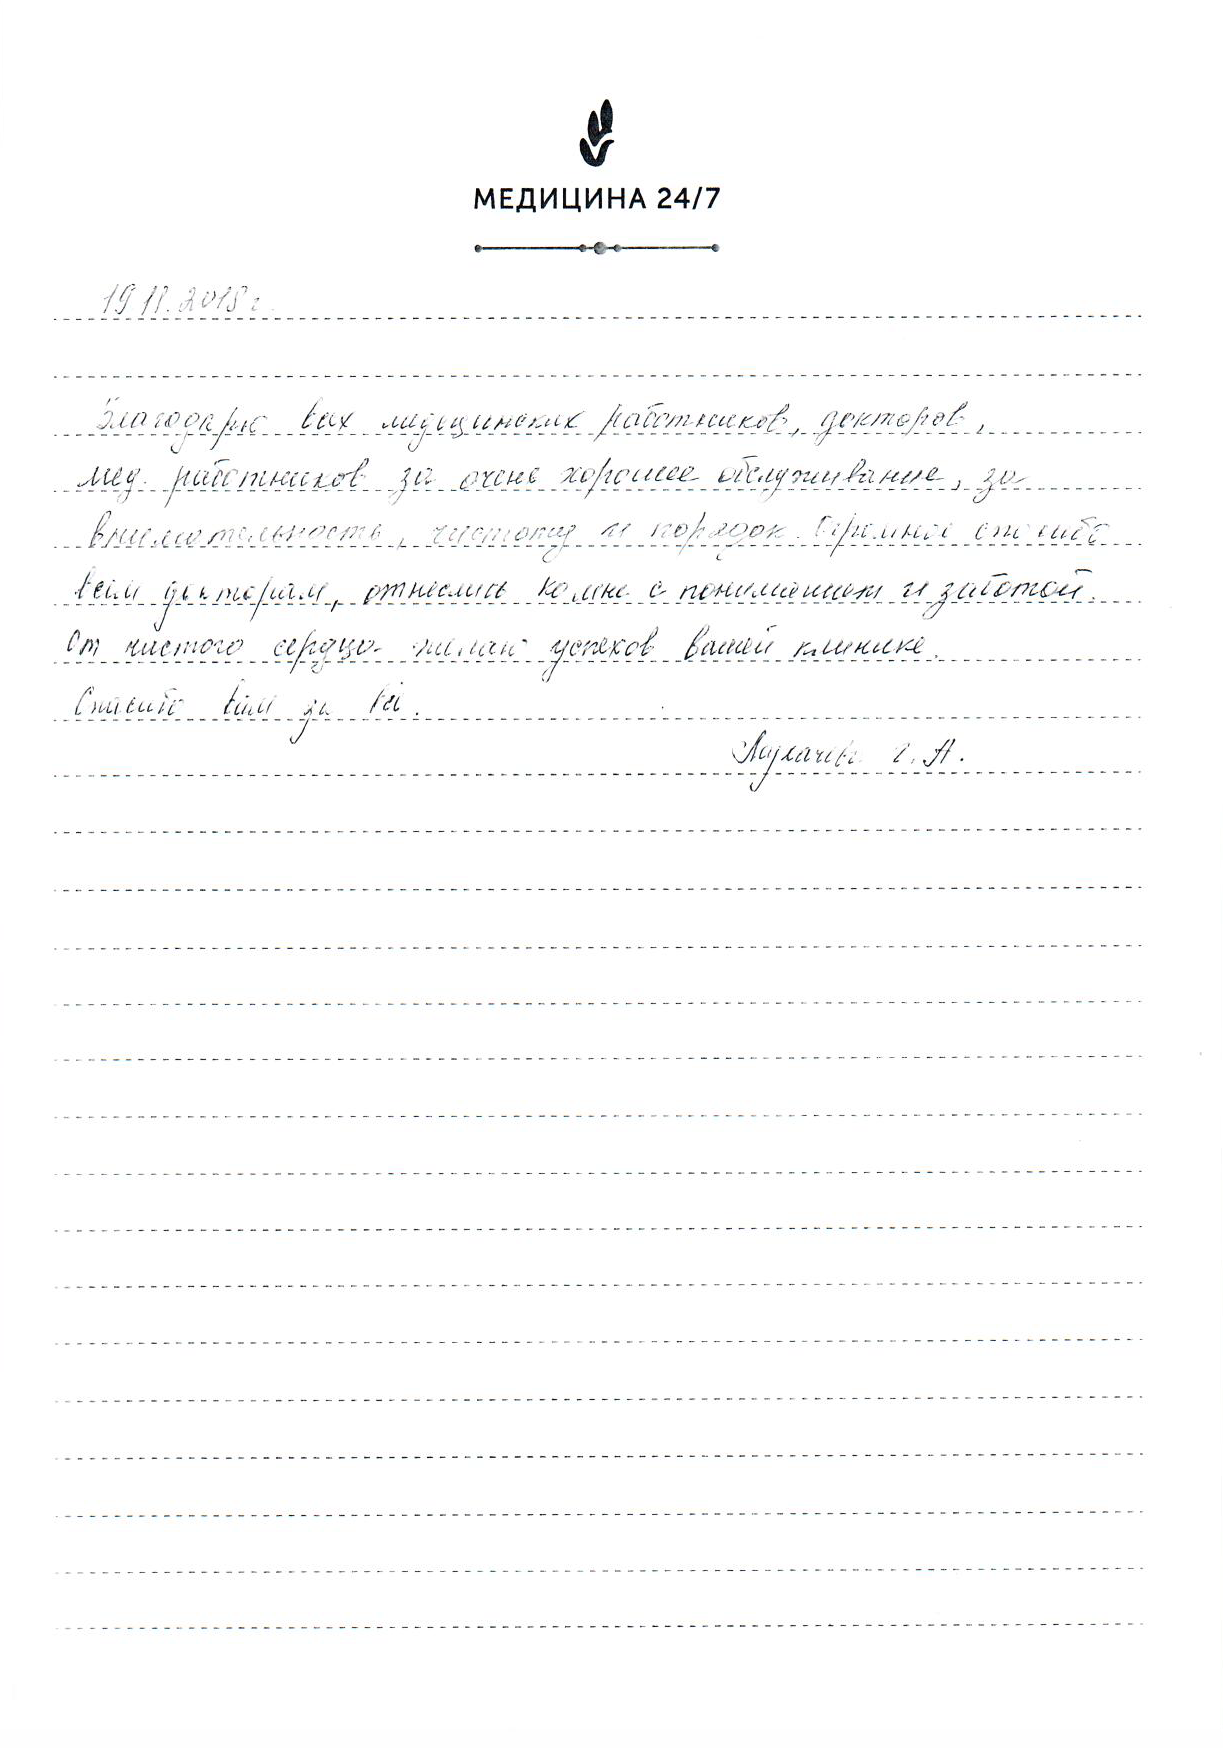 МЕДИЦИНА 24/7
19.11.2018 г.
Благодарю всех медицинских работников, докторов,
мед. работников за очень хорошее обслуживание, за
внимательность, чистоту и порядок. Огромное спасибо
всем докторам, отнеслись ко мне с пониманием и заботой.
От чистого сердца желаю успехов вашей клинике.
Спасибо вам за всё.
А.